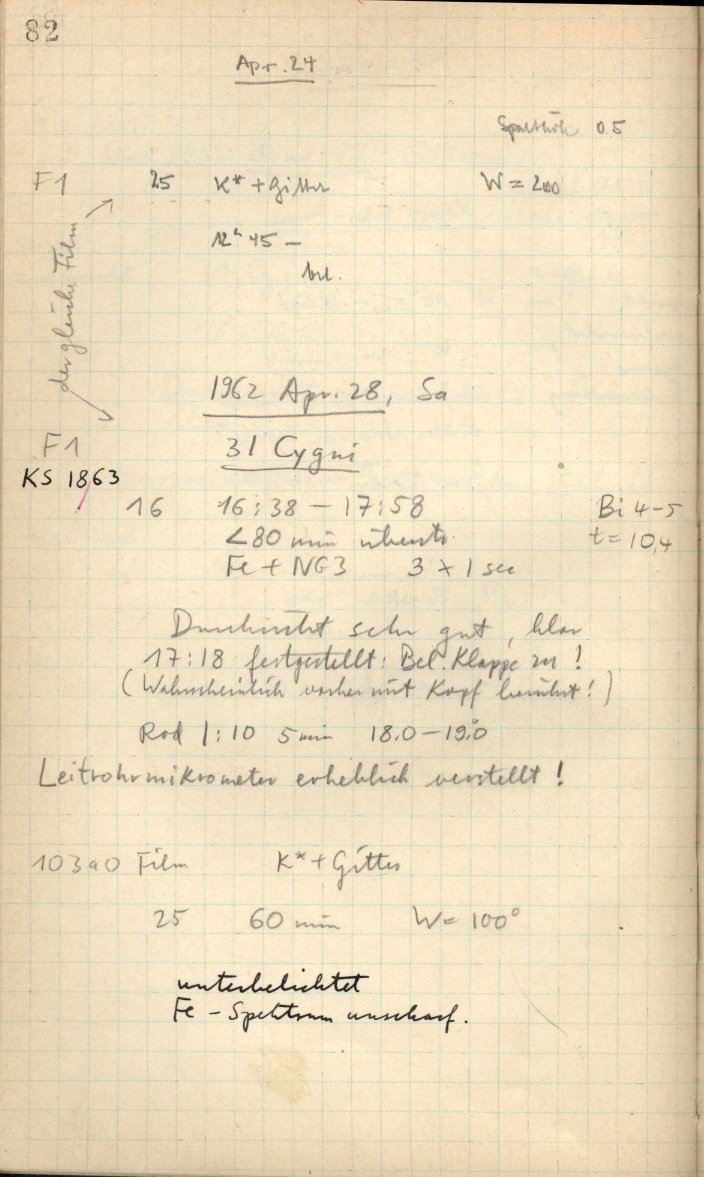 82
Apr. 24
Spalthöh 0.5
F1 25 K* + Gitter W = 200
12h 45 –
bel.
der gleiche Film
1962 Apr. 28, Sa
F1 31 Cygni
KS 1863
16 16:38 – 17:58 Bi 4-5
<80 min t = 10,4
Fe + NG3 3 x 1 sec
Durchsicht sehr gut, klar
17:18 festgestellt: Bel. Klappe zu!
(Wahrscheinlich vorher mit Kopf berührt!)
Rod 1:10 5 min 18.0 – 19.0
Leitrohrmikrometer erheblich verstellt!
103a0 Film K* + Gitter
25 60 min W = 100°
unterbelichtet
Fe – Spektrum unscharf.